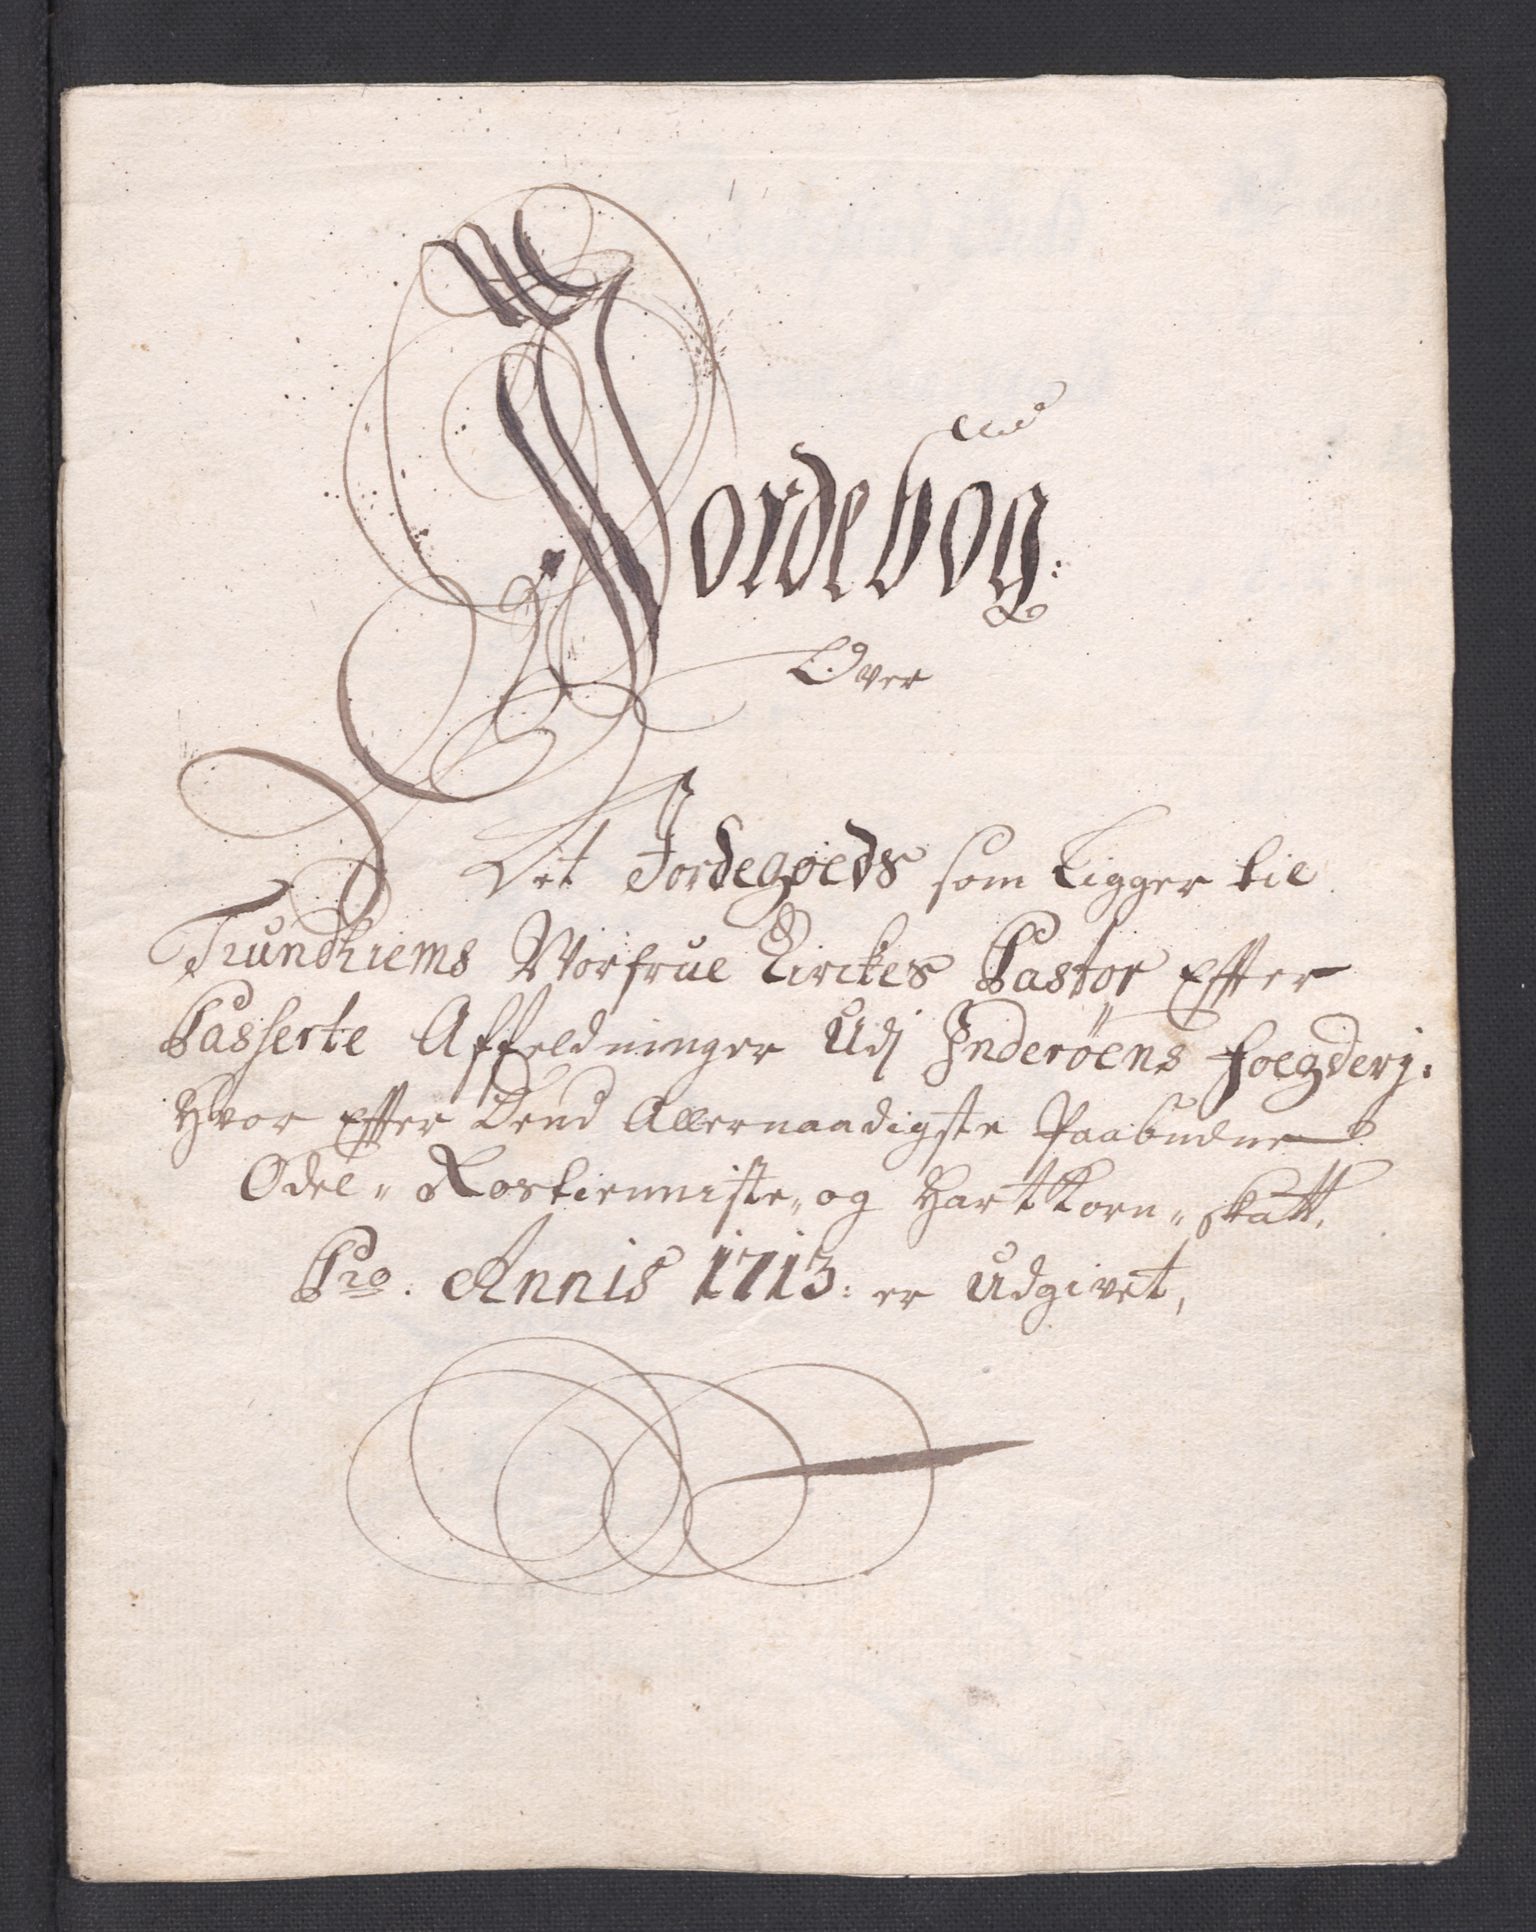 Jordebog:
Over
Det Jordegoeds som Ligger til
Trundhiems Worfrue Kirckes Pastor Effter
Passerte Affeldninger Udj Inderöens foegderj:
Hvor Effter Dend Allernaadigste Paabudne
Odel„ Rostienniste„ og Hartkorn„ skatt,
Pro. Annis 1713: er Udgivet,